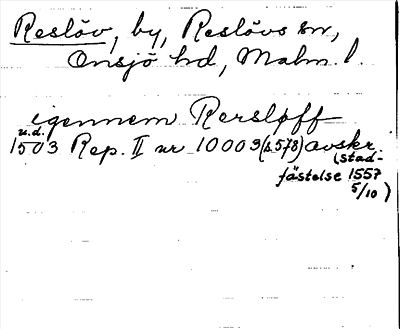 Reslöv, by, Reslövs sn,
Onsjö hd, Malm. l.
igennem Rersløff
u.d.
1503 Rep. II nr 10009 (s. 578) avskr.
(stad-
fästelse 1557
5/10)